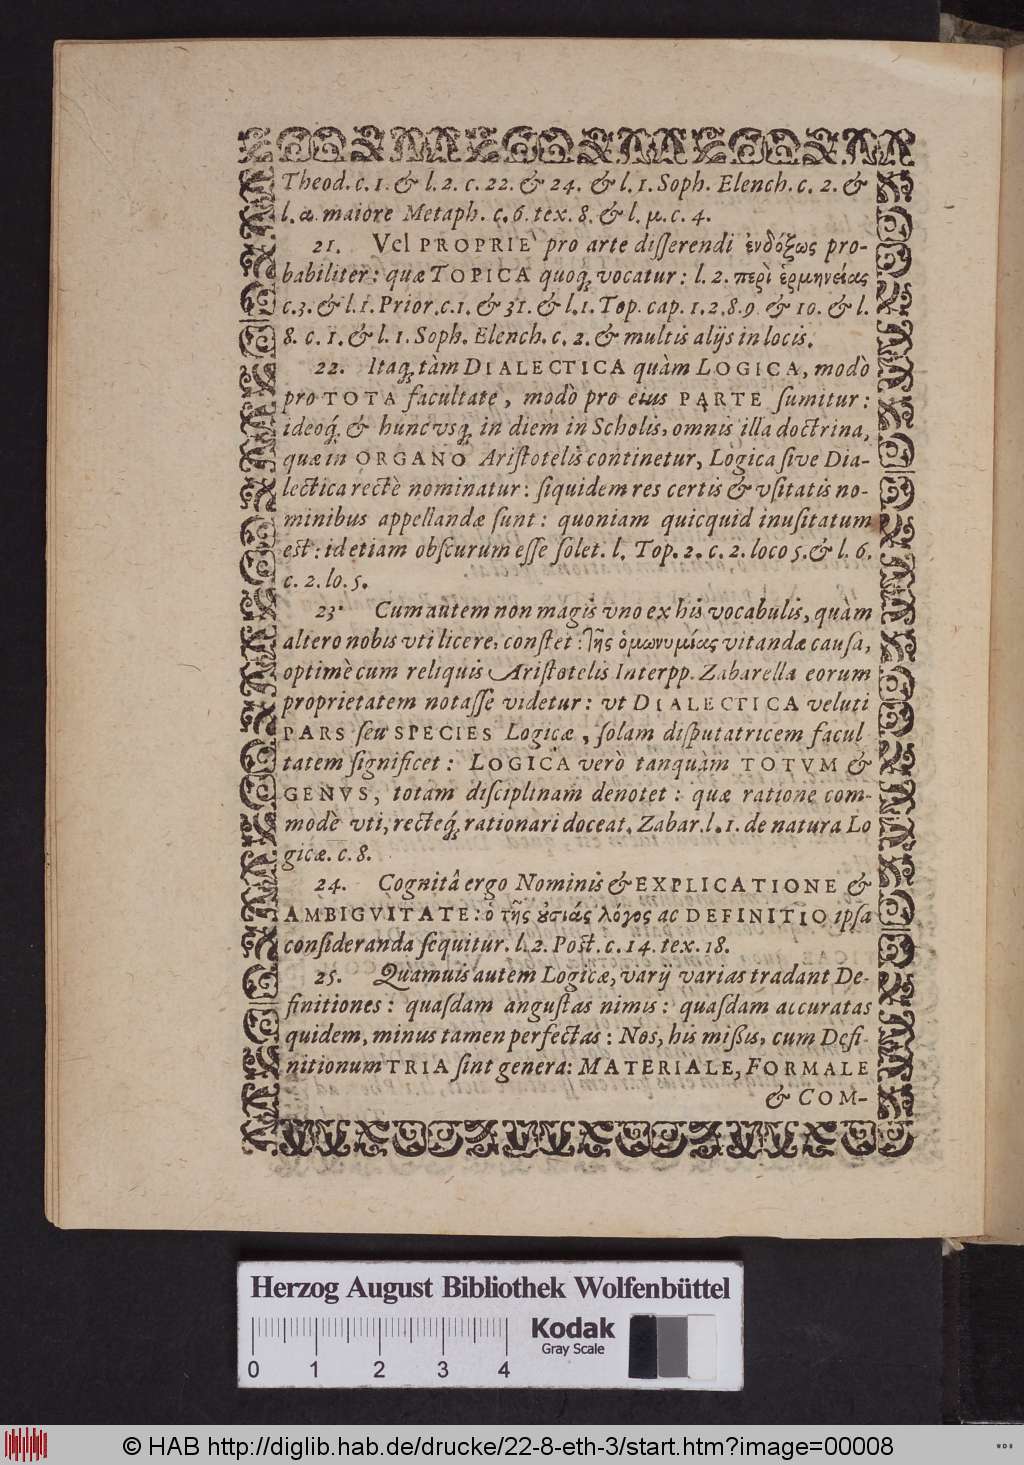 Theod. c. 1. & l. 2. c. 22. & 24. & l. 1. Soph. Elench. c. 2. &
l. α. maiore Metaph. c. 6. tex. 8. & l. μ. c. 4.
21. Vel PROPRIE pro arte disserendi ἐνδόξως pro-
babiliter: quæ TOPICA quoq; vocatur: l. 2. περὶ ἑρμηνείας
c. 3. & l. 1. Prior. c. 1. & 31. & l. 1. Top. cap. 1. 2. 8. 9. & 10. & l.
8. c. 1. & l. 1. Soph. Elench. c. 2. & multis alijs in locis.
22. Itaq; tàm DIALECTICA quàm LOGICA, modò
pro TOTA facultate, modò pro eius PARTE sumitur:
ideoq; & huncvsq; in diem in Scholis, omnis illa doctrina,
quæ in ORGANO Aristotelis continetur, Logica sive Dia-
lectica rectè nominatur: siquidem res certis & vsitatis no-
minibus appellandæ sunt: quoniam quicquid inusitatum
est: id etiam obscurum esse solet. l. Top. 2. c. 2. loco 5. & l. 6.
c. 2. lo. 5.
23. Cum autem non magis vno ex his vocabulis, quàm
altero nobis vti licere, constet: τῆς ὁμωνυμίας vitandæ causa,
optimè cum reliquis Aristotelis Interpp. Zabarella eorum
proprietatem notasse videtur: vt DIALECTICA veluti
PARS seu SPECIES Logicæ, solam disputatricem facul
tatem significet: LOGICA verò tanquàm TOTVM &
GENVS, totam disciplinam denotet: quæ ratione com-
modè vti, recteq; rationari doceat. Zabar. l. 1. de natura Lo
gicæ. c. 8.
24. Cognitâ ergo Nominis & EXPLICATIONE &
AMBIGVITATE: ὁ τῆς ȣσιάς λόγος ac DEFINITIO ipsa
consideranda sequitur. l. 2. Post. c. 14. tex. 18.
25. Quamuis autem Logicæ, varij varias tradant De-
finitiones: quasdam angustas nimis: quasdam accuratas
quidem, minus tamen perfectas: Nos, his missis, cum Defi-
nitionum TRIA sint genera: MATERIALE, FORMALE
& COM-
Herzog August Bibliothek Wolfenbüttel
Kodak
Gray Scale
0 1 2 3 4
© HAB http://diglib.hab.de/drucke/22-8-eth-3/start.htm?image=00008